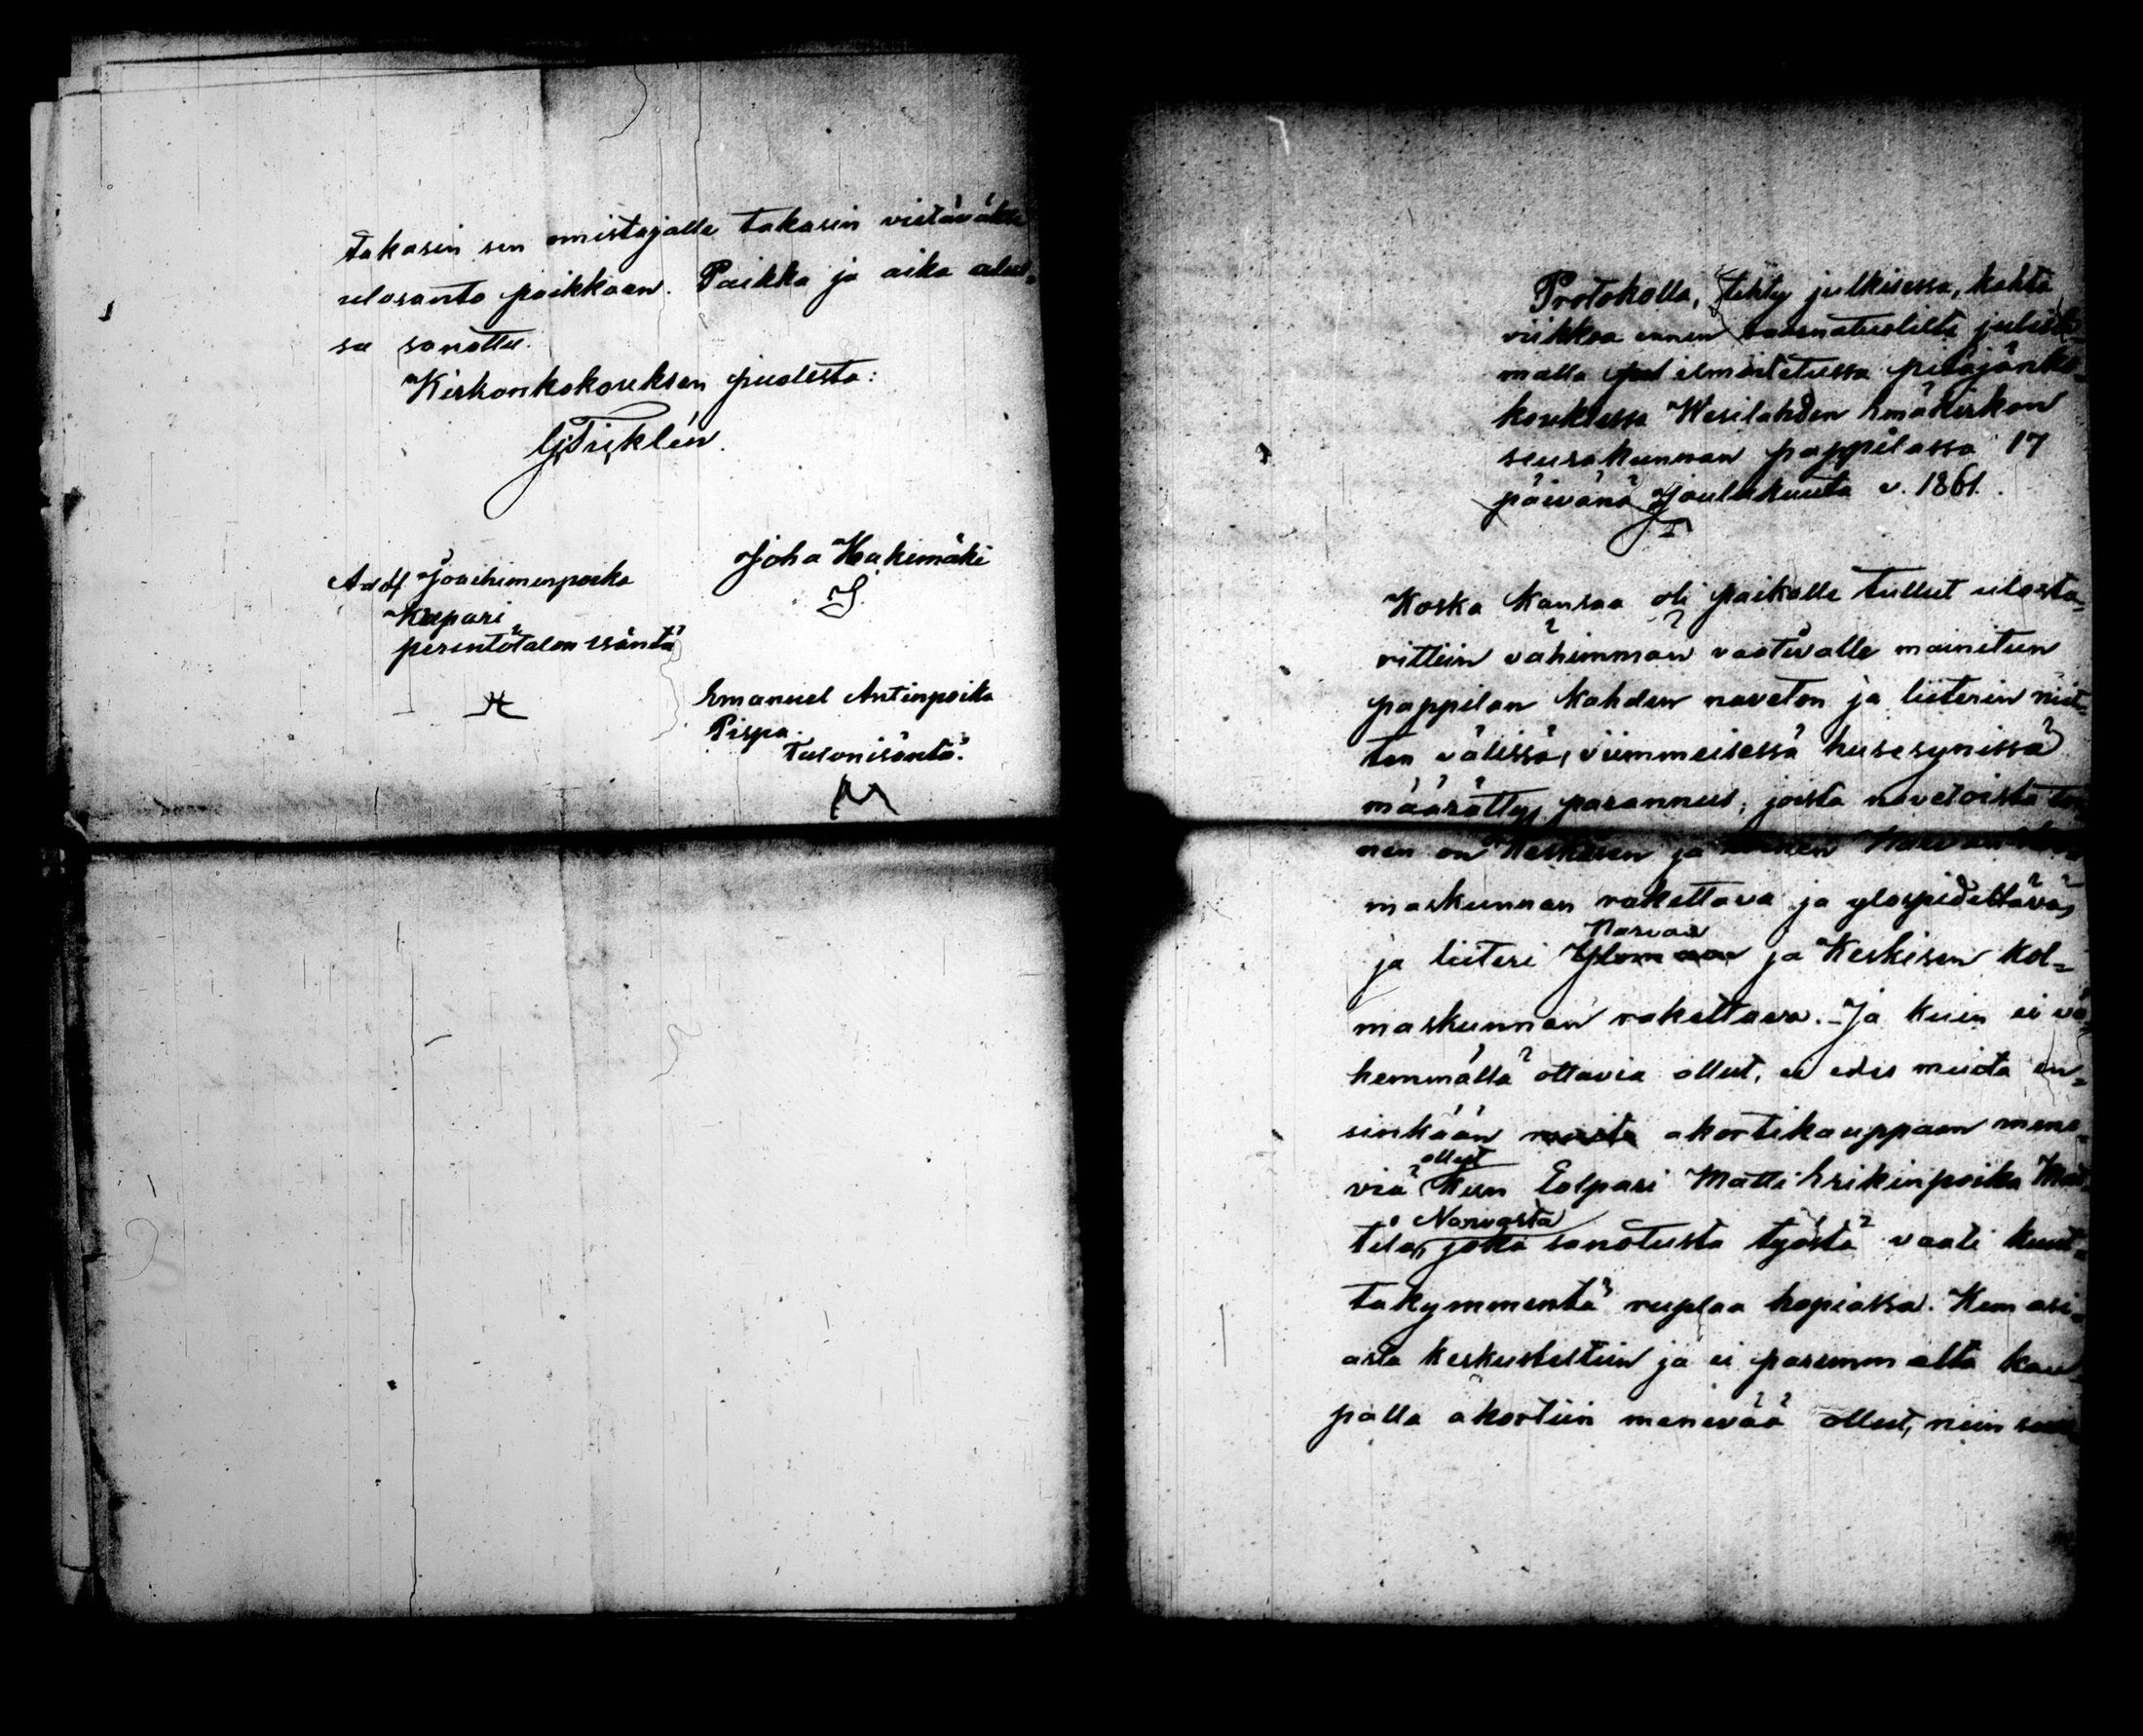 takasin sen omistajalle takasin vietäväkse
ulosanto paikkaan. Paikka ja aika alus-
sa sanottu.
Kirkonkokouksen puolesta:
Gj. Tickléu.
Joha Hakemäki
Adolf Joachimenpoika
Kapari
perintötalon isäntä
Emanuel Antinpoika
Pispa.
Talonisäntä.
Protokolla, tehty julkisessa, kahta
viikkoa ennen saarnatuolilta julista-
malla ilmoitetussa pitäjänko-
kouksessa Wesilahden Emäkirkon
seurakunnan pappilassa 17
päivänä Joulukuuta v. 1861.
Koska kansaa oli paikalle tullut ulosta-
rittiin vähimmän vaativalle mainitun
pappilan kahden naveton ja liiterin niit-
ten välissä, viimmeisessä husesynissä
määrätty parannus; joista navetoista toi-
nen on Keskisen ja toinen Narvan kol-
maskunnan rakettava ja ylöspidettävä,
ja liiteri Narvan ja Keskisen kol-
maskunnan rakettava. - Ja kuin ei vä-
hemmällä ottavia ollut, ei edes muita en-
sinkään akortikauppaan mene-
viä ollut kuin Lolpari Matti Erikinpoika Mat-
tila, Narvasta joka sanotusta työstä vaati kuut-
takymmentä ruplaa hopiassa. Kun asi-
asta keskusteltiin ja ei paremmalta kau-
palla akortiin menevää ollut, niin